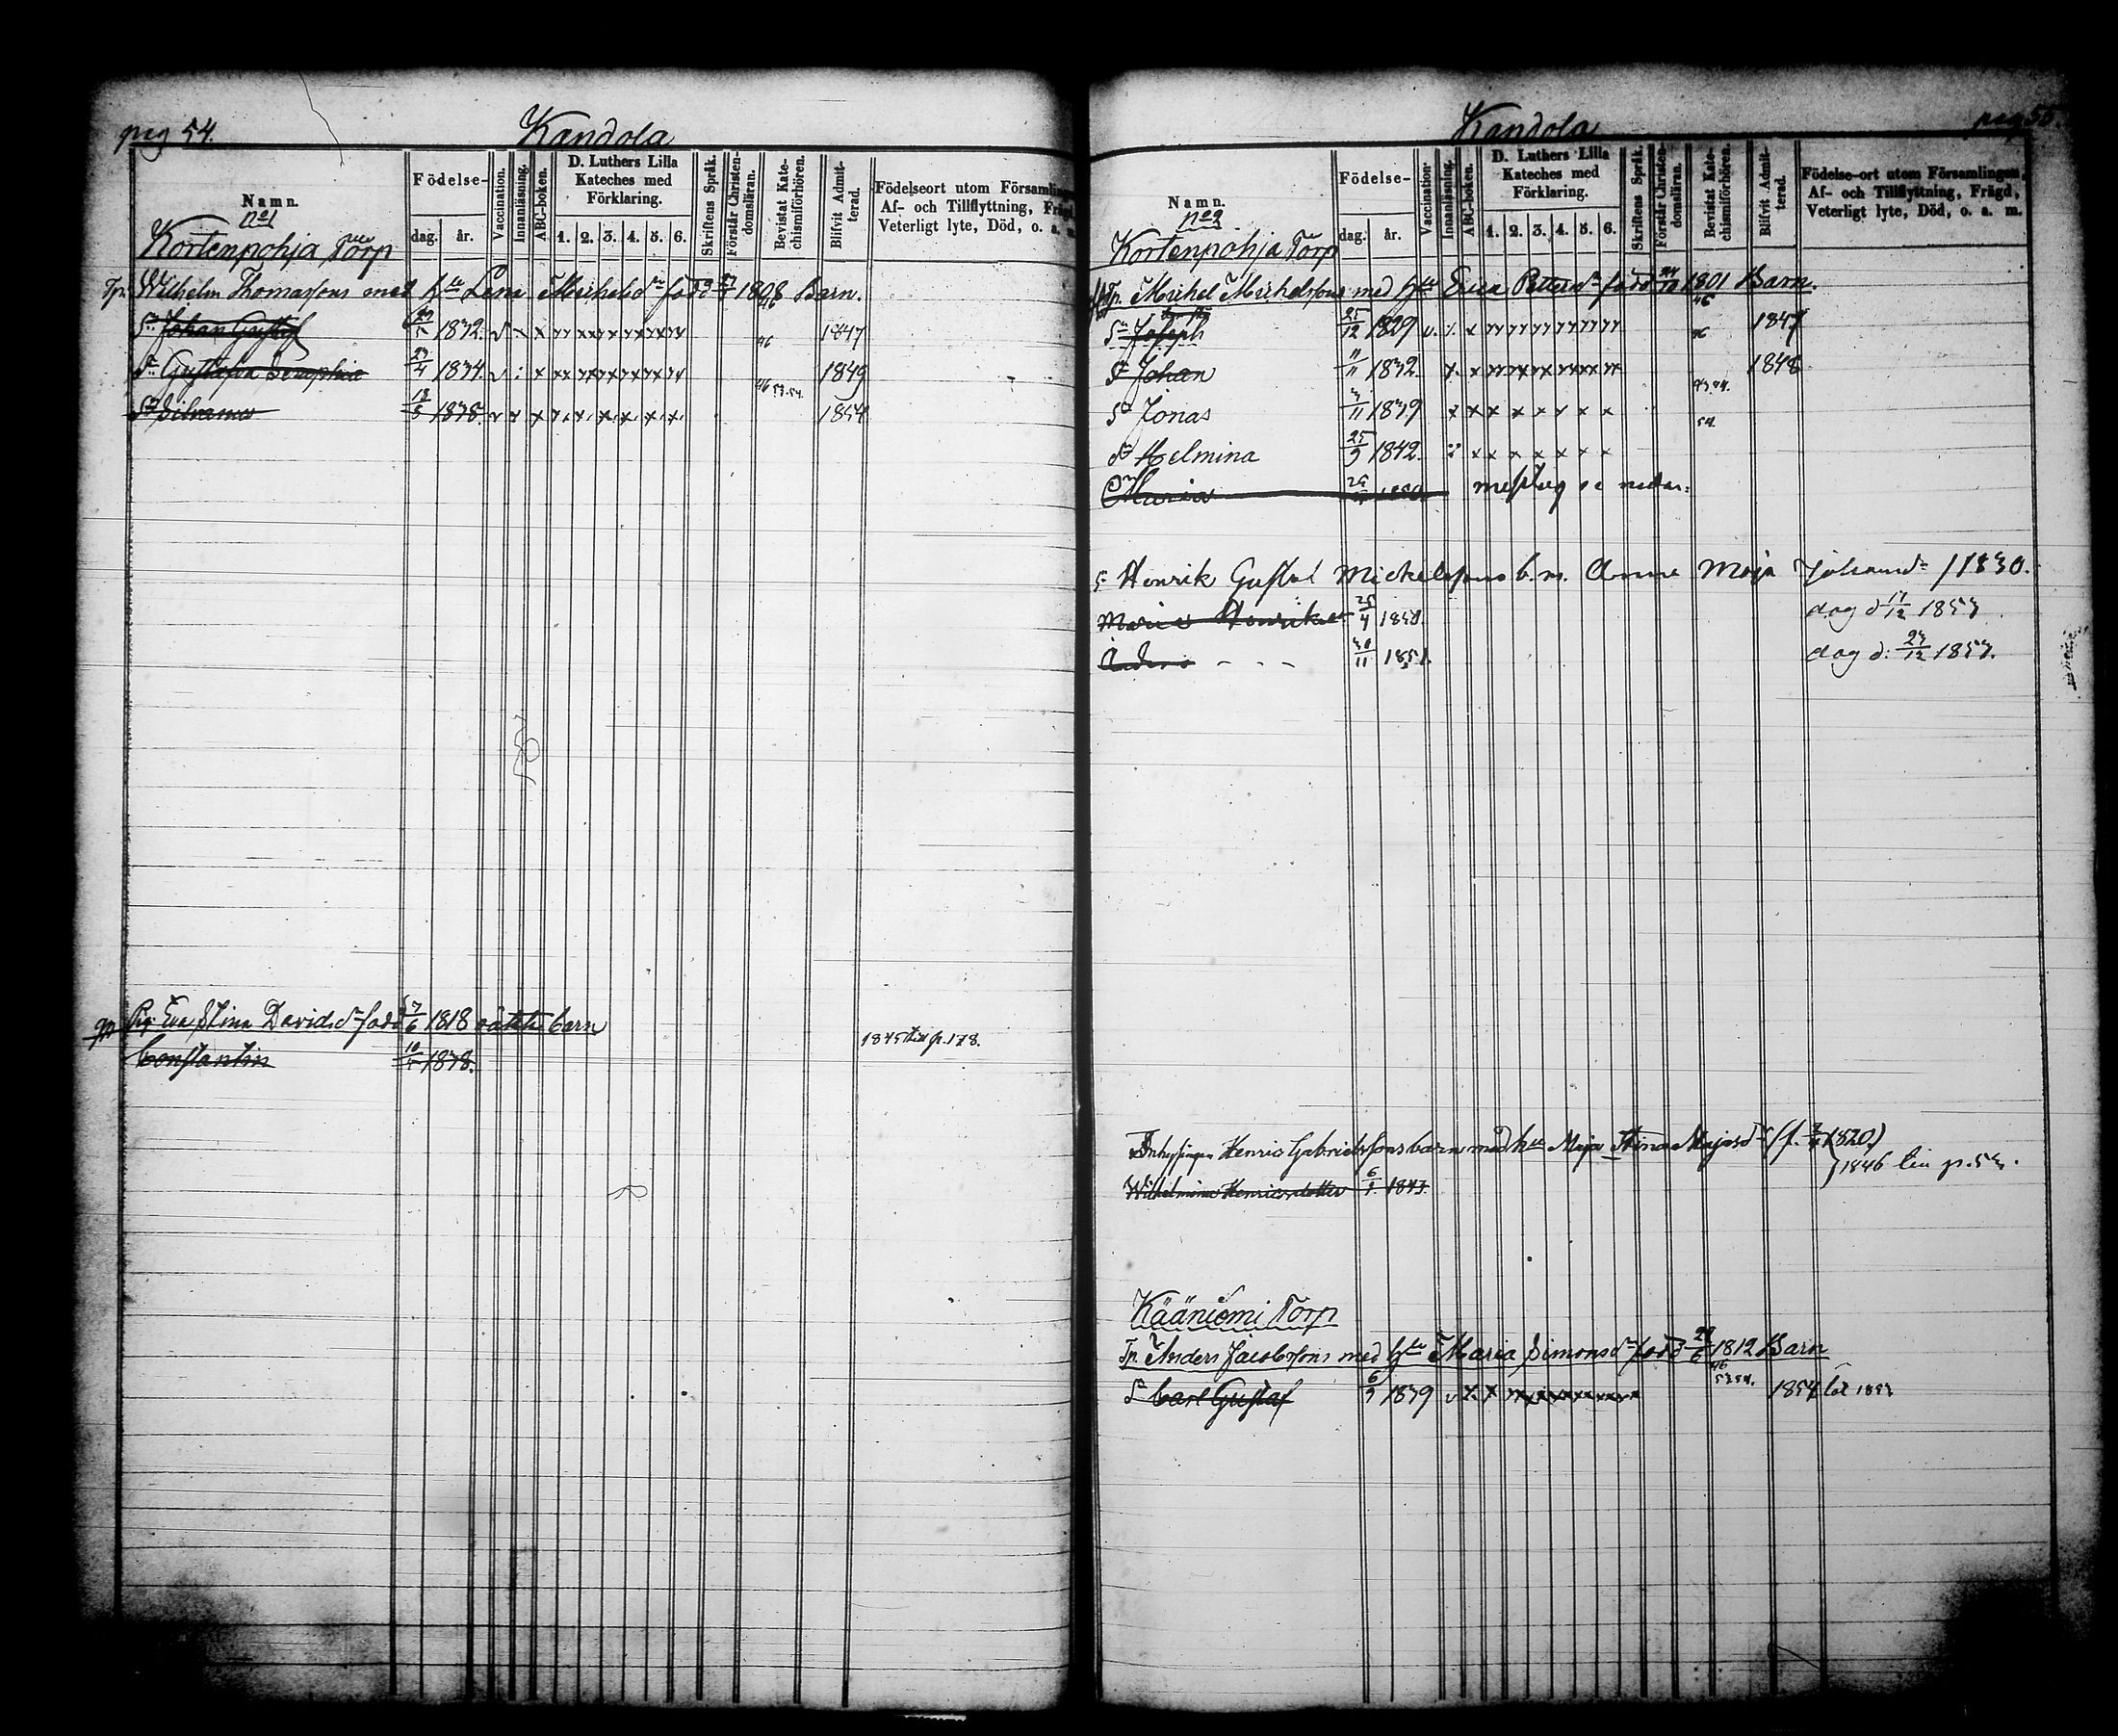 pag 54.
Kandola
Namn.
Födelse-
dag.
år.
Vaccination.
Innanläsning.
ABC-boken.
D. Luthers Lilla Kateches med Förklaring.
1. 2. 3. 4. 5. 6.
Skriftens Språk.
Förstår Christendomsläran.
Bevistat Katechismiförhören.
Blifvit Admitterad.
Födelseort utom Församlingen
Af- och Tillflyttning, Frägd,
Veterligt lyte, Död, o. a. m.
No 1
Kortenpohja Torp
Tp. Wilhelm Thomassons med hu Lena Michelsdr född 1808 Barn.
Sn Johan Gustaf 1832. 46 1847
Dr Gustafva Seraphia 23/4 1834. 1849
Sn Silvanus 13/5 1838. 46 53.54. 1854
Pig. Eva Stina Davidsdr född 1818 oäkta barn
1845 till p. 178.
Constantin 1838.
pag 55.
Kandola
Namn.
Födelse-
dag.
år.
Vaccination.
Innanläsning.
ABC-boken.
D. Luthers Lilla Kateches med Förklaring.
1. 2. 3. 4. 5. 6.
Skriftens Språk.
Förstår Christendomsläran.
Bevistat Katechismiförhören.
Blifvit Admitterad.
Födelse-ort utom Församlingen,
Af- och Tillflyttning, Frägd,
Veterligt lyte, Död, o. a. m.
No 2
Kortenpohja Torp
Tp. Michel Michelssons med hu Erica Pettersdr född 1801 Barn.
Sn Joseph 25/12 1829 46 1847
Sn Johan 11/11 1832. 1848
Sn Jonas 3/11 1839 54.
Dr Helmina 25/9 1842.
Maria
Sn Henrik Gustaf Mickelssons b. m. Anna Maja Johansdr / 1830.
Maria Henrika 25/4 1850. dog d 17/12 1853
Anders - - - 30/11 1851. dog d. 23/12 1853.
Inhysingen Henric Gabrielssons barn med hu Maja Stina Majasdr (f. 1820)
1846 p. 53.
Wilhelmina Henricsdotter 1843.
Kääniemi Torp
Tp. Anders Jacobssons med hu Maria Simonsdr född 1812 Barn
Sn Carl Gustaf 6/9 1839 46 53 54. 1854